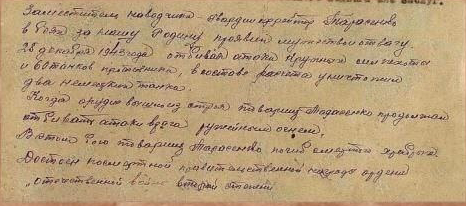 Заместитель наводчика - Гвардии ефрейтор Тарасенко
в боях за нашу Родину проявил мужество и отвагу.
28 декабря 1943 года отбивая атаки крупных сил пехоты
и 60 танков противника, в составе расчета уничтожил
два немецких танка.
Когда орудие вышло из строя товарищ Тарасенко продолжал
отбивать атаки врага ружейным огнем.
В этом бою товарищ Тарасенко погиб смертью храбрых.
Достоин посмертной правительственной награды ордена
"Отечественной войны второй степени